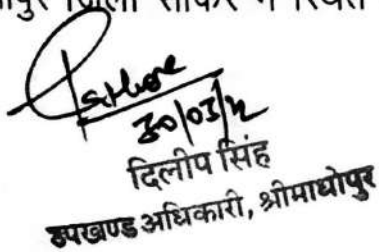 जिला सीकर में स्थित
30/03/2
दिलीप सिंह
उपखण्ड अधिकारी, श्रीमाधोपुर